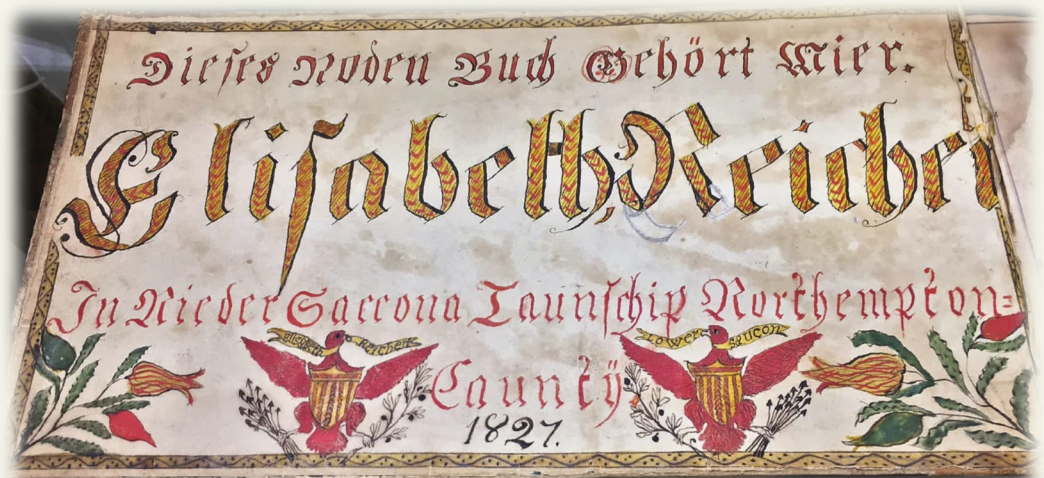 Dieses Noden Buch Gehört Mier.
Elisabeth, Reicher
In Nieder Saccona Taunschip Northempton=
Elisabeth Reichert Lower Saucon
Caunty
1827.